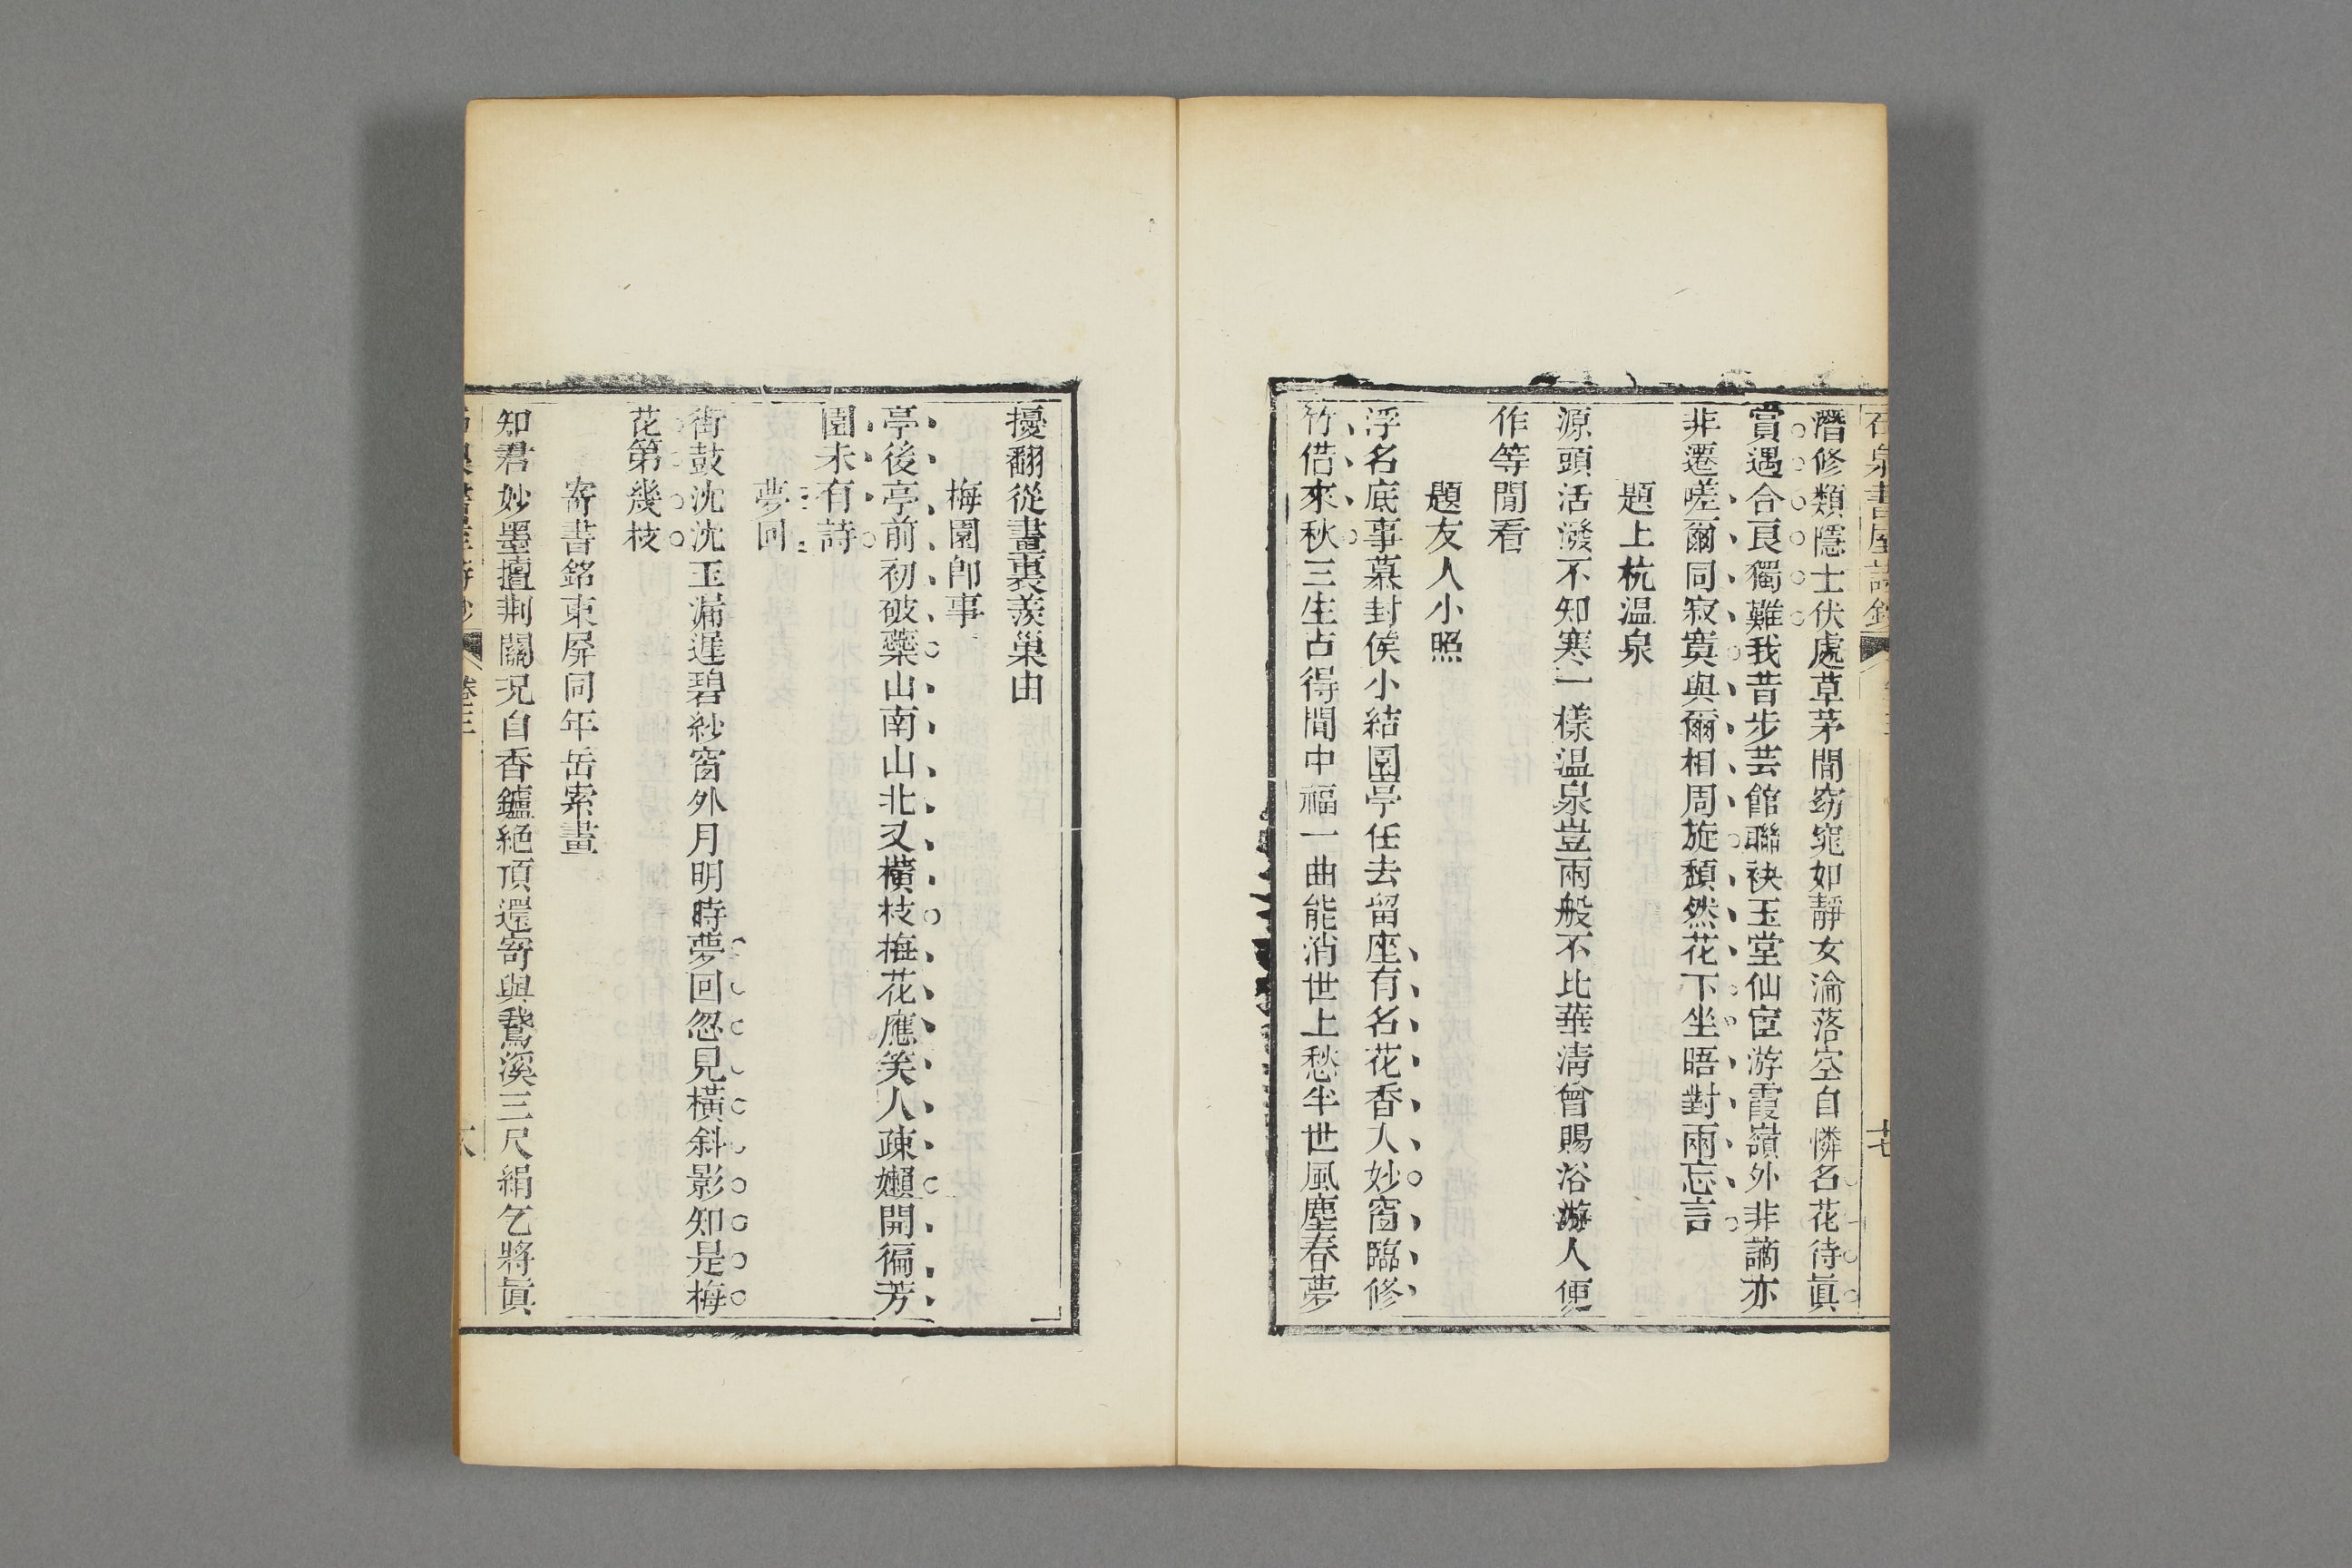 潛修類隱士伏處草茅間窈窕如靜女淪落空自憐名花待眞
賞遇合良獨難我昔步芸館聯袂玉堂仙宦游霞嶺外非謫亦
非遷嗟爾同寂寞與爾相周旋頹然花下坐晤對兩忘言
題上杭温泉
源頭活潑不知寒一樣温泉豈兩般不比華淸曾賜浴遊人便
作等閒看
題友人小照
浮名底事慕封侯小結園亭任去留座有名花香人妙窗臨修
竹借來秋三生占得閒中福一曲能消世上愁半世風塵春夢
擾翻從畫裏羨巢由
梅園卽事
亭後亭前初破蘂山南山北又橫枝梅花應笑人疎嬾開徧芳
園未有詩
夢回
街鼓沈沈玉漏遲碧紗窗外月明時夢回忽見橫斜影知是梅
花第幾枝
寄書銘東屏同年岳索畫
知君妙墨擅荆關況自香鑪絕頂還寄與鵞溪三尺絹乞將眞